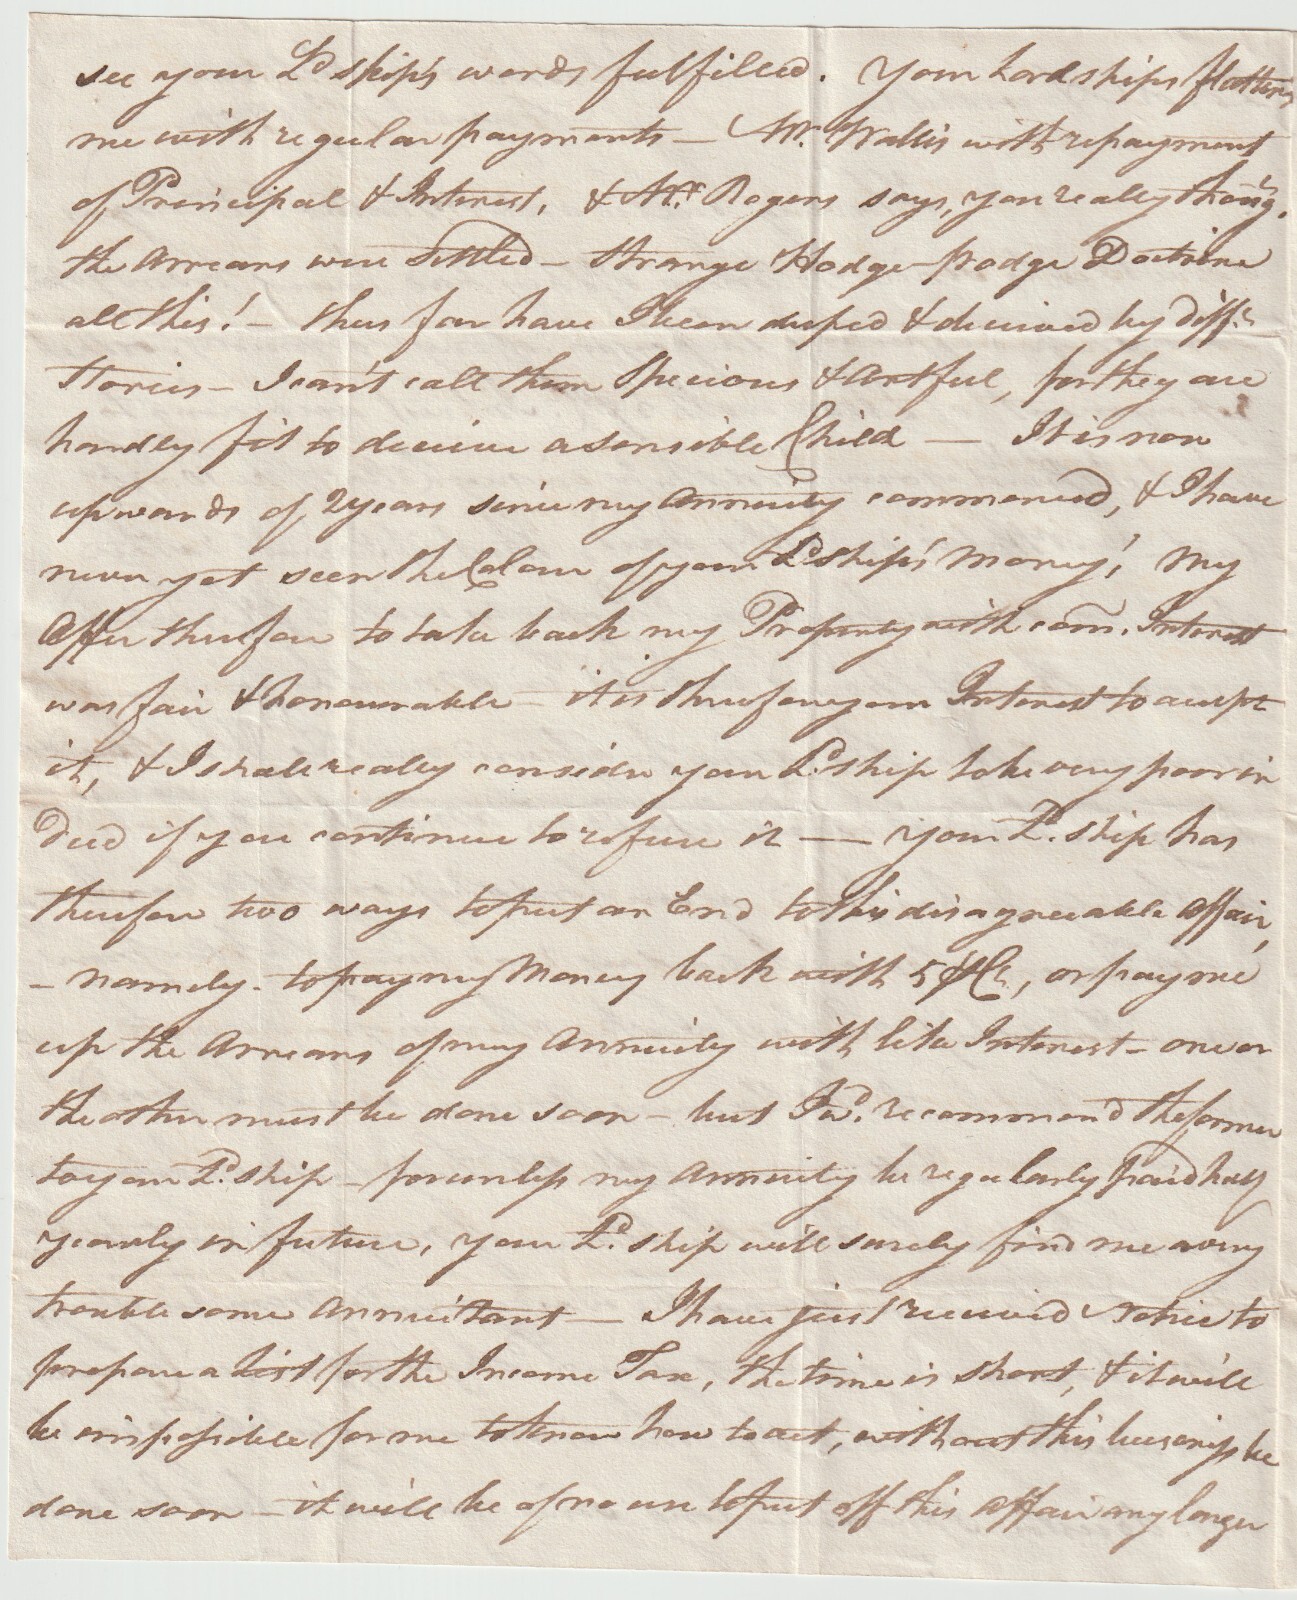 see your Ld. ship's words fulfilled. Your Lordships flatters
me with regular payments — Mr. Wallis with repayment
of Principal & Interest, & Mr. Rogers says, you really thoug.t
the Arrears were Settled — Strange Hodge-podge Doctrine
all this! — thus far have I been duped & deceived by diff.t
Stories — I can't call them Specious & Artful, for they are
hardly fit to deceive a sensible Child — It is now
upwards of 2 years since my Annuity commenced, & I have
never yet seen the Colour of your Ld. ship's Money! My
Offer therefore to take back my Property with com. Interest
was fair & honourable — it is therefore your Interest to accept
it, & I shall really consider your Ld. ship to be very poor in
Deed if you continue to refuse it — your Ld. ship has
therefore two ways to put an End to this disagreeable Affair,
— namely — to pay my Money back with 5 ⅌ Ct, or pay me
up the Arrears of my Annuity with like Interest — one or
the other must be done soon — but I wd. recommend the former
to your Ld. ship — for unless my Annuity be regularly paid half
yearly in future, your Ld. ship will surely find me a very
trouble some Annuitant — I have just received Notice to
prepare a List for the Income Tax, the time is short, & it will
be impossible for me to know how to act, without this business be
done soon — it will be of no use to put off this Affair any longer